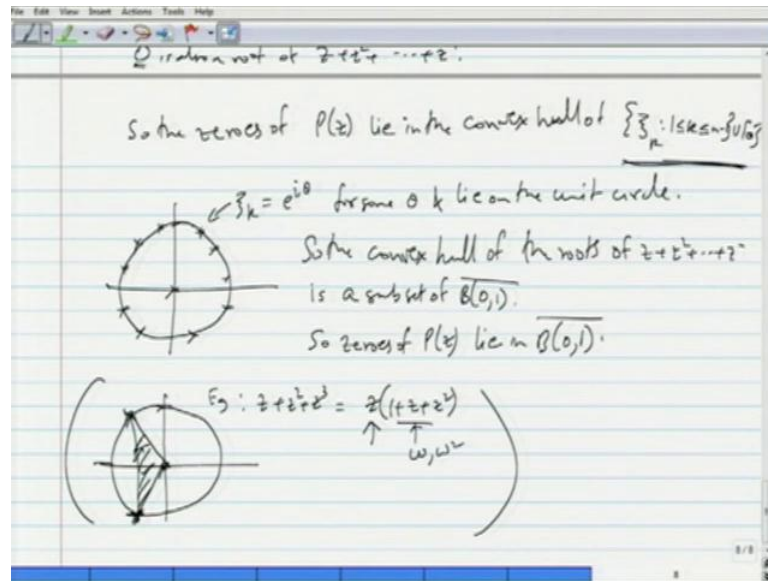 File Edit View Insert Actions Tools Help
0 is also a root of z+z²+ ---+zⁿ.
So the zeroes of P(z) lie in the convex hull of {ξₖ : 1≤k≤n-1}∪{0}
ξₖ = e^{iθ} for some θ & lie on the unit circle.
So the convex hull of the roots of z+z²+...+zⁿ
is a subset of \overline{B(0,1)}.
So zeroes of P(z) lie in \overline{B(0,1)}.
Eg: z+z²+z³ = z(1+z+z²)
ω, ω²
8/8
8